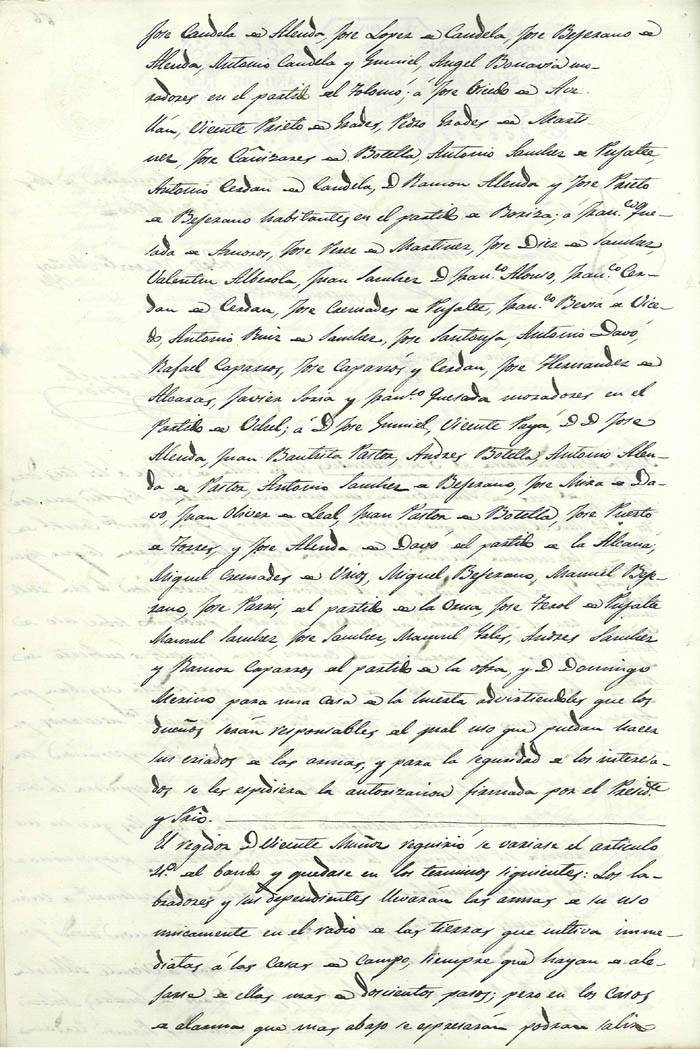 Jose Candela de Alenda, Jose Lopez de Candela, Jose Beferano de
Alenda, Antonio Candela y Gumiel, Angel Bonavia mo-
radores en el partido del Tolomó; á Jose Oledo de
Vicente Prieto de Grades, Pedro Grades de Marti-
nez, Jose Cañizares de Botella, Antonio Sanchez de Pujalte,
Antonio Cerdan de Candela, D Ramon Alenda y Jose Prieto
de Beferano habitantes en el partido de Boriza; á Fran.co Que-
sada de Amoros, Jose Perez de Martinez, Jose Diez de Sanchez,
Valentin Alberola, Juan Sanchez D Fran.co Alonso, Fran.co Cer-
dan de Cerdan, Jose Cremades de Pujalte, Fran.co Beviá de Vice-
do, Antonio Ruiz de Sanchez, Jose Santonja, Antonio Davó,
Rafael Caparros, Jose Caparrós y Cerdan, Jose Hernandez de
Alcarás, Javier Soria y Fran.co Quesada moradores en el
Partido de Uchel; á D Jose Gumiel, Vicente Payá, D D Jose
Alenda, Juan Bautista Pastor, Andres Botella, Antonio Alen-
da de Pastor, Antonio Sanchez de Beferano, Jose Mira de Da-
vó, Juan Oliver de Leal, Juan Pastor de Botella, Jose Puerto
de Torres, y Jose Alenda de Davó del partido de la Alcaná;
Miguel Cremades de Urios, Miguel Beferano, Manuel Befe-
rano, Jose Parris, del partido de la Oma, Jose Terol de Pujalte
Manuel Sanchez, Jose Sanchez, Manuel Yales, Andres Sanchez
y Ramon Caparros del partido de la ofra, y D Domingo
Merino para una casa de la huerta advirtiendoles que los
dueños serán responsables del mal uso que puedan hacer
sus criados de las armas, y para la seguridad de los interesa-
dos se les espidiera la autorizacion firmada por el Presid.te
y Srio.
El regidor D Vicente Muñoz requirió se variase el articulo
11.º del bando y quedase en los terminos siguientes: Los la-
bradores y sus dependientes llevarán las armas de su uso
unicamente en el radio de las tierras que cultiva inme-
diatas á las casas de campo, siempre que hayan de ale-
jarse de ellas mas de doscientos pasos; pero en los casos
de alarma que mas abajo se espresarán podran salir